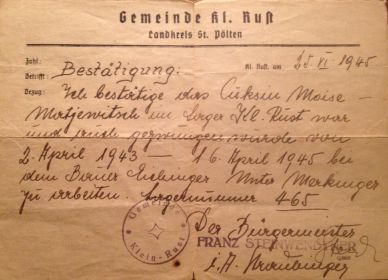 Gemeinde Kl. Rust
Landkreis St. Pölten
Zahl:
Betrifft: Bestätigung:
Bezug:
Kl. Rust, am 25. VI 1945
Ich bestätige das Cuksin Moise –
Motjewitsch im Lager Kl. Rust war
und gezwungen wurde von
2. April 1943 – 16. April 1945 bei
dem Unter Merkinger
zu arbeiten. Lagernummer 465
Der Bürgermeister
FRANZ STEINWENDTNER
i. A.
Gemeinde
Klein-Rust